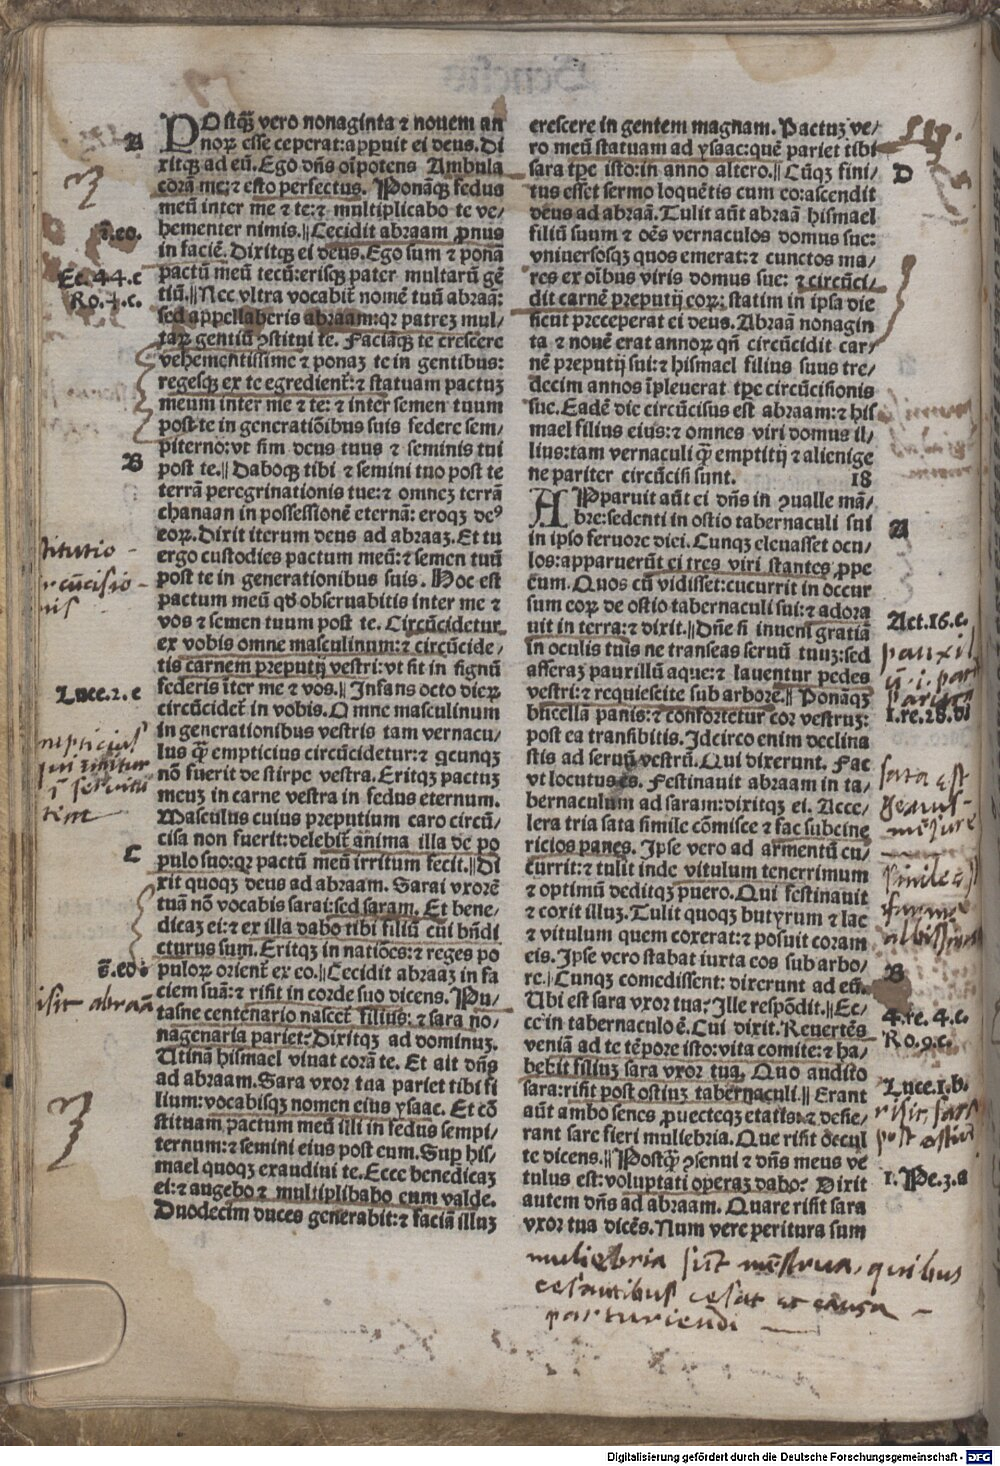 A
POstq̃ vero nonaginta ⁊ nouem an
noꝝ esse ceperat:apparuit ei deus. Di
xitqꝫ ad eũ. Ego dñs oĩpotens Ambula
corã me:⁊ esto perfectus. Ponãqꝫ fedus
meũ inter me ⁊ te:⁊ multiplicabo te ve/
hementer nimis.||Cecidit abraam ꝓnus
in faciẽ. Dixitqꝫ ei deus. Ego sum ⁊ ponã
pactũ meũ tecũ:erisqꝫ pater multarũ gẽ
tiũ.||Nec vltra vocabit̃ nomẽ tuũ abraã:
sed appellaberis abraam:qꝛ patreꝫ mul/
taꝝ gentiũ ꝯstitui te. Faciãqꝫ te crescere
vehementissime ⁊ ponaꝫ te in gentibus:
regesqꝫ ex te egredient̃:⁊ statuam pactuꝫ
meum inter me ⁊ te: ⁊ inter semen tuum
post te in generatiõibus suis federe sem/
piterno:vt sim deus tuus ⁊ seminis tui
post te.||Daboqꝫ tibi ⁊ semini tuo post te
terrã peregrinationis tue:⁊ omneꝫ terrã
chanaan in possessionẽ eternã: eroqꝫ deꝰ
eoꝝ. Dixit iterum deus ad abraaꝫ. Et tu
ergo custodies pactum meũ:⁊ semen tuũ
post te in generationibus suis. Hoc est
pactum meũ qđ obseruabitis inter me ⁊
vos ⁊ semen tuum post te. Circũcidetur
ex vobis omne masculinum:⁊ circũcide/
tis carnem preputij vestri:vt sit in signũ
federis ĩter me ⁊ vos.||Infans octo dieꝝ
circũcidet̃ in vobis. Omne masculinum
in generationibus vestris tam vernacu/
lus q̃ empticius circũcidetur:⁊ qcunqꝫ
nõ fuerit de stirpe vestra. Eritqꝫ pactuꝫ
meuꝫ in carne vestra in fedus eternum.
Masculus cuius preputium caro circũ/
cisa non fuerit:delebit̃ anima illa de po
pulo suo:qꝛ pactũ meũ irritum fecit.||Di
xit quoqꝫ deus ad abraam. Sarai vxorẽ
tuã nõ vocabis sarai:sed saram. Et bene/
dicaꝫ ei:⁊ ex illa dabo tibi filiũ cui bñdi
cturus sum. Eritqꝫ in natiões:⁊ reges po
puloꝝ orient̃ ex eo.||Cecidit abraaꝫ in fa
ciem suã:⁊ risit in corde suo dicens. Pu/
tasne centenario nascet̃ filius: ⁊ sara no/
nagenaria pariet? Dixitqꝫ ad dominuꝫ.
Utinã hismael viuat corã te. Et ait dñs
ad abraam. Sara vxor tua pariet tibi fi
lium:vocabisqꝫ nomen eius ysaac. Et cõ
stituam pactum meũ illi in fedus sempi/
ternum:⁊ semini eius post eum. Suꝑ his/
mael quoqꝫ exaudiui te. Ecce benedicaꝫ
ei:⁊ augebo ⁊ multiplicabo eum valde.
Duodecim duces generabit:⁊ faciã illuꝫ
ñ.eo.
Ec.44.c
Ro.4.c.
B
titutio
rcũcisio
nis
Luce.2.c
C
s̃.eo.
isit abraã
crescere in gentem magnam. Pactuꝫ ve/
ro meũ statuam ad ysaac:quẽ pariet tibi
sara tꝑe isto:in anno altero.||Cũqꝫ fini/
tus esset sermo loquẽtis cum eo:ascendit
deus ad abraã. Tulit aũt abraã hismael
filiũ suum ⁊ oẽs vernaculos domus sue:
vniuersosqꝫ quos emerat:⁊ cunctos ma/
res ex oĩbus viris domus sue: ⁊ circũci/
dit carnẽ preputij eoꝝ: statim in ipsa die
sicut preceperat ei deus. Abraã nonagin
ta ⁊ nouẽ erat annoꝝ qñ circũcidit car/
nẽ preputij sui:⁊ hismael filius suus tre/
decim annos ĩpleuerat tꝑe circũcisionis
sue. Eadẽ die circũcisus est abraam:⁊ his
mael filius eius:⁊ omnes viri domus il/
lius:tam vernaculi q̃ emptitij ⁊ alienige
ne pariter circũcisi sunt. 18
APparuit aũt ei dñs in ꝯualle mã/
bre:sedenti in ostio tabernaculi sui
in ipso feruore diei. Cunqꝫ eleuasset ocu/
los:apparuerũt ei tres viri stantes ꝓpe
eum. Quos cũ vidisset:cucurrit in occur
sum eoꝝ de ostio tabernaculi sui:⁊ adora
uit in terra:⁊ dixit.||Dñe si inueni gratiã
in oculis tuis ne transeas seruũ tuuꝫ:sed
afferaꝫ pauxillũ aque:⁊ lauentur pedes
vestri:⁊ requiescite sub arbore.||Ponãqꝫ
bucellã panis:⁊ confortetur cor vestruꝫ:
post ea transibitis. Idcirco enim declina
stis ad seruũ vestrũ. Qui dixerunt. Fac
vt locutus es. Festinauit abraam in ta/
bernaculum ad saram:dixitqꝫ ei. Acce/
lera tria sata simile cõmisce ⁊ fac subcine
ricios panes. Ipse vero ad armentũ cu/
currit:⁊ tulit inde vitulum tenerrimum
⁊ optimũ deditqꝫ puero. Qui festinauit
⁊ coxit illuꝫ. Tulit quoqꝫ butyrum ⁊ lac
⁊ vitulum quem coxerat:⁊ posuit coram
eis. Ipse vero stabat iuxta eos sub arbo/
re.||Cunqꝫ comedissent: dixerunt ad eũ.
Ubi est sara vxor tua? Ille respõdit.||Ec/
ce in tabernaculo ẽ. Cui dixit. Reuertẽs
veniã ad te tẽpore isto:vita comite:⁊ ha/
bebit filiuꝫ sara vxor tua. Quo audito
sara:risit post ostiuꝫ tabernaculi.||Erant
aũt ambo senes ꝓuecteqꝫ etatis:⁊ desie/
rant sare fieri muliebria. Que risit occul
te dicens.||Postq̃ ꝯsenui ⁊ dñs meus ve
tulus est:voluptati operaꝫ dabo? Dixit
autem dñs ad abraam. Quare risit sara
vxor tua dicẽs. Num vere paritura sum
D
A
Act.16.c.
pauxil
1.re.28.d
sata est
similes
B
4.re.4.c.
Ro.9.c.
Luce.1.b.
risit sara
post ostiũ
1.Pe.3.a
muliebria sũt mẽstrua, quibus
cesantibus cesat et causa
parturiendi
Digitalisierung gefördert durch die Deutsche Forschungsgemeinschaft - DFG